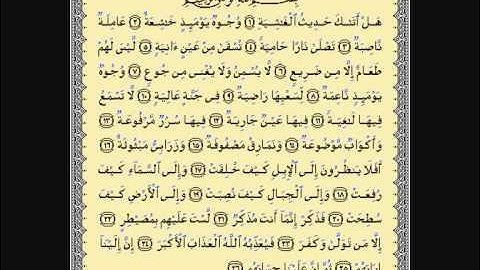 بِسْمِ اللَّهِ الرَّحْمَٰنِ الرَّحِيمِ
هَلْ أَتَىٰكَ حَدِيثُ ٱلْغَٰشِيَةِ ١ وُجُوهٌ يَوْمَئِذٍ خَٰشِعَةٌ ٢ عَامِلَةٌ
نَّاصِبَةٌ ٣ تَصْلَىٰ نَارًا حَامِيَةً ٤ تُسْقَىٰ مِنْ عَيْنٍ ءَانِيَةٍ ٥ لَّيْسَ لَهُمْ
طَعَامٌ إِلَّا مِن ضَرِيعٍ ٦ لَّا يُسْمِنُ وَلَا يُغْنِى مِن جُوعٍ ٧ وُجُوهٌ
يَوْمَئِذٍ نَّاعِمَةٌ ٨ لِّسَعْيِهَا رَاضِيَةٌ ٩ فِى جَنَّةٍ عَالِيَةٍ ١٠ لَّا تَسْمَعُ
فِيهَا لَٰغِيَةً ١١ فِيهَا عَيْنٌ جَارِيَةٌ ١٢ فِيهَا سُرُرٌ مَّرْفُوعَةٌ ١٣
وَأَكْوَابٌ مَّوْضُوعَةٌ ١٤ وَنَمَارِقُ مَصْفُوفَةٌ ١٥ وَزَرَابِىُّ مَبْثُوثَةٌ ١٦
أَفَلَا يَنظُرُونَ إِلَى ٱلْإِبِلِ كَيْفَ خُلِقَتْ ١٧ وَإِلَى ٱلسَّمَآءِ كَيْفَ
رُفِعَتْ ١٨ وَإِلَى ٱلْجِبَالِ كَيْفَ نُصِبَتْ ١٩ وَإِلَى ٱلْأَرْضِ كَيْفَ
سُطِحَتْ ٢٠ فَذَكِّرْ إِنَّمَآ أَنتَ مُذَكِّرٌ ٢١ لَّسْتَ عَلَيْهِم بِمُصَيْطِرٍ ٢٢
إِلَّا مَن تَوَلَّىٰ وَكَفَرَ ٢٣ فَيُعَذِّبُهُ ٱللَّهُ ٱلْعَذَابَ ٱلْأَكْبَرَ ٢٤ إِنَّ إِلَيْنَآ
إِيَابَهُمْ ٢٥ ثُمَّ إِنَّ عَلَيْنَا حِسَابَهُم ٢٦